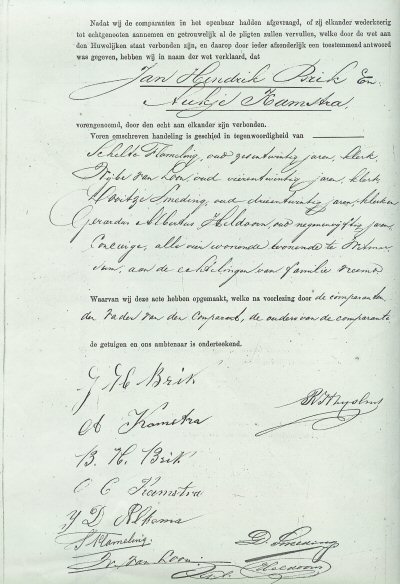 Nadat wij de comparanten in het openbaar hadden afgevraagd, of zij elkander wederkeerig
tot echtgenooten aannemen en getrouwelijk al de pligten zullen vervullen, welke door de wet aan
den Huwelijken staat verbonden zijn, en daarop door ieder afzonderlijk een toestemmend antwoord
was gegeven, hebben wij in naam der wet verklaard, dat
Jan Hendrik Brik En
Aukje Kamstra,
vorengenoemd, door den echt aan elkander zijn verbonden.
Voren omschreven handeling is geschied in tegenwoordigheid van
Schelte Kameling, oud zesentwintig jaren, klerk,
van Loon, oud vierentwintig jaren, klerk
Smeding, oud drieentwintig jaren, klerk en
Gerardus Albertus Heldoorn, oud negenenvijftig jaren,
allen wonende te
aan de echtelingen van familie vreemd
Waarvan wij deze acte hebben opgemaakt, welke na voorlezing door de comparanten
den vader van den comparant, de ouders van de comparante
de getuigen en ons ambtenaar is onderteekend.
J H Brik
A Kamstra
B. H. Brik
C Kamstra
D Alkema
S Kameling
D. Smeding
van Loon